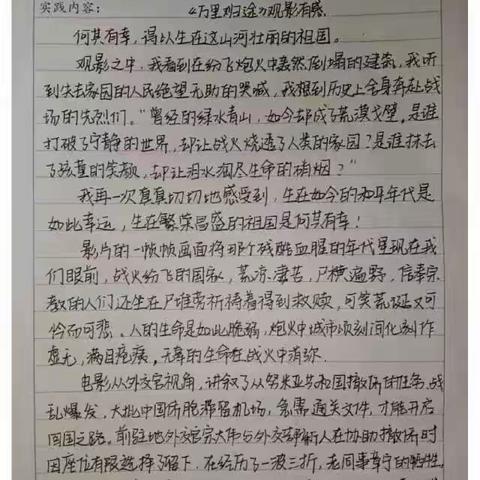 实践内容：
《万里归途》观影有感
何其有幸，得以生在这山河壮丽的祖国。
观影之中，我看到在纷飞炮火中轰然倒塌的建筑，我听
到失去家园的人民绝望无助的哭喊，我想到历史上全身奔赴战
场的先烈们。“曾经的绿水青山，如今却成了荒漠戈壁。是谁
打破了宁静的世界，却让战火烧透了人类的家园？是谁抹去
了孩童的笑颜，却让泪水淌尽生命的硝烟？”
我再一次真真切切地感受到，生在如今的和平年代是
如此幸运，生在繁荣昌盛的祖国是何其有幸！
影片的一帧帧画面将那个残酷血腥的年代呈现在我
们眼前，战火纷飞的国家，荒凉凄苦，尸横遍野，信奉宗
教的人们还生在尸堆旁祈祷着得到救赎，可笑荒诞又可
怜而可悲。人的生命是如此脆弱，炮火中城市顷刻间化作
虚无，满目疮痍。无辜的生命在战火中消弥.
电影从外交官视角，讲叙了从努米亚共和国撤侨的任务，战
乱爆发，大批中国侨胞滞留机场，急需通关文件，才能开启
回国之路。前驻地外交官宗大伟与外交部新人在协助撤侨时
因座位有限选择了留下，在经历了一波三折，老同事章宁的牺牲，